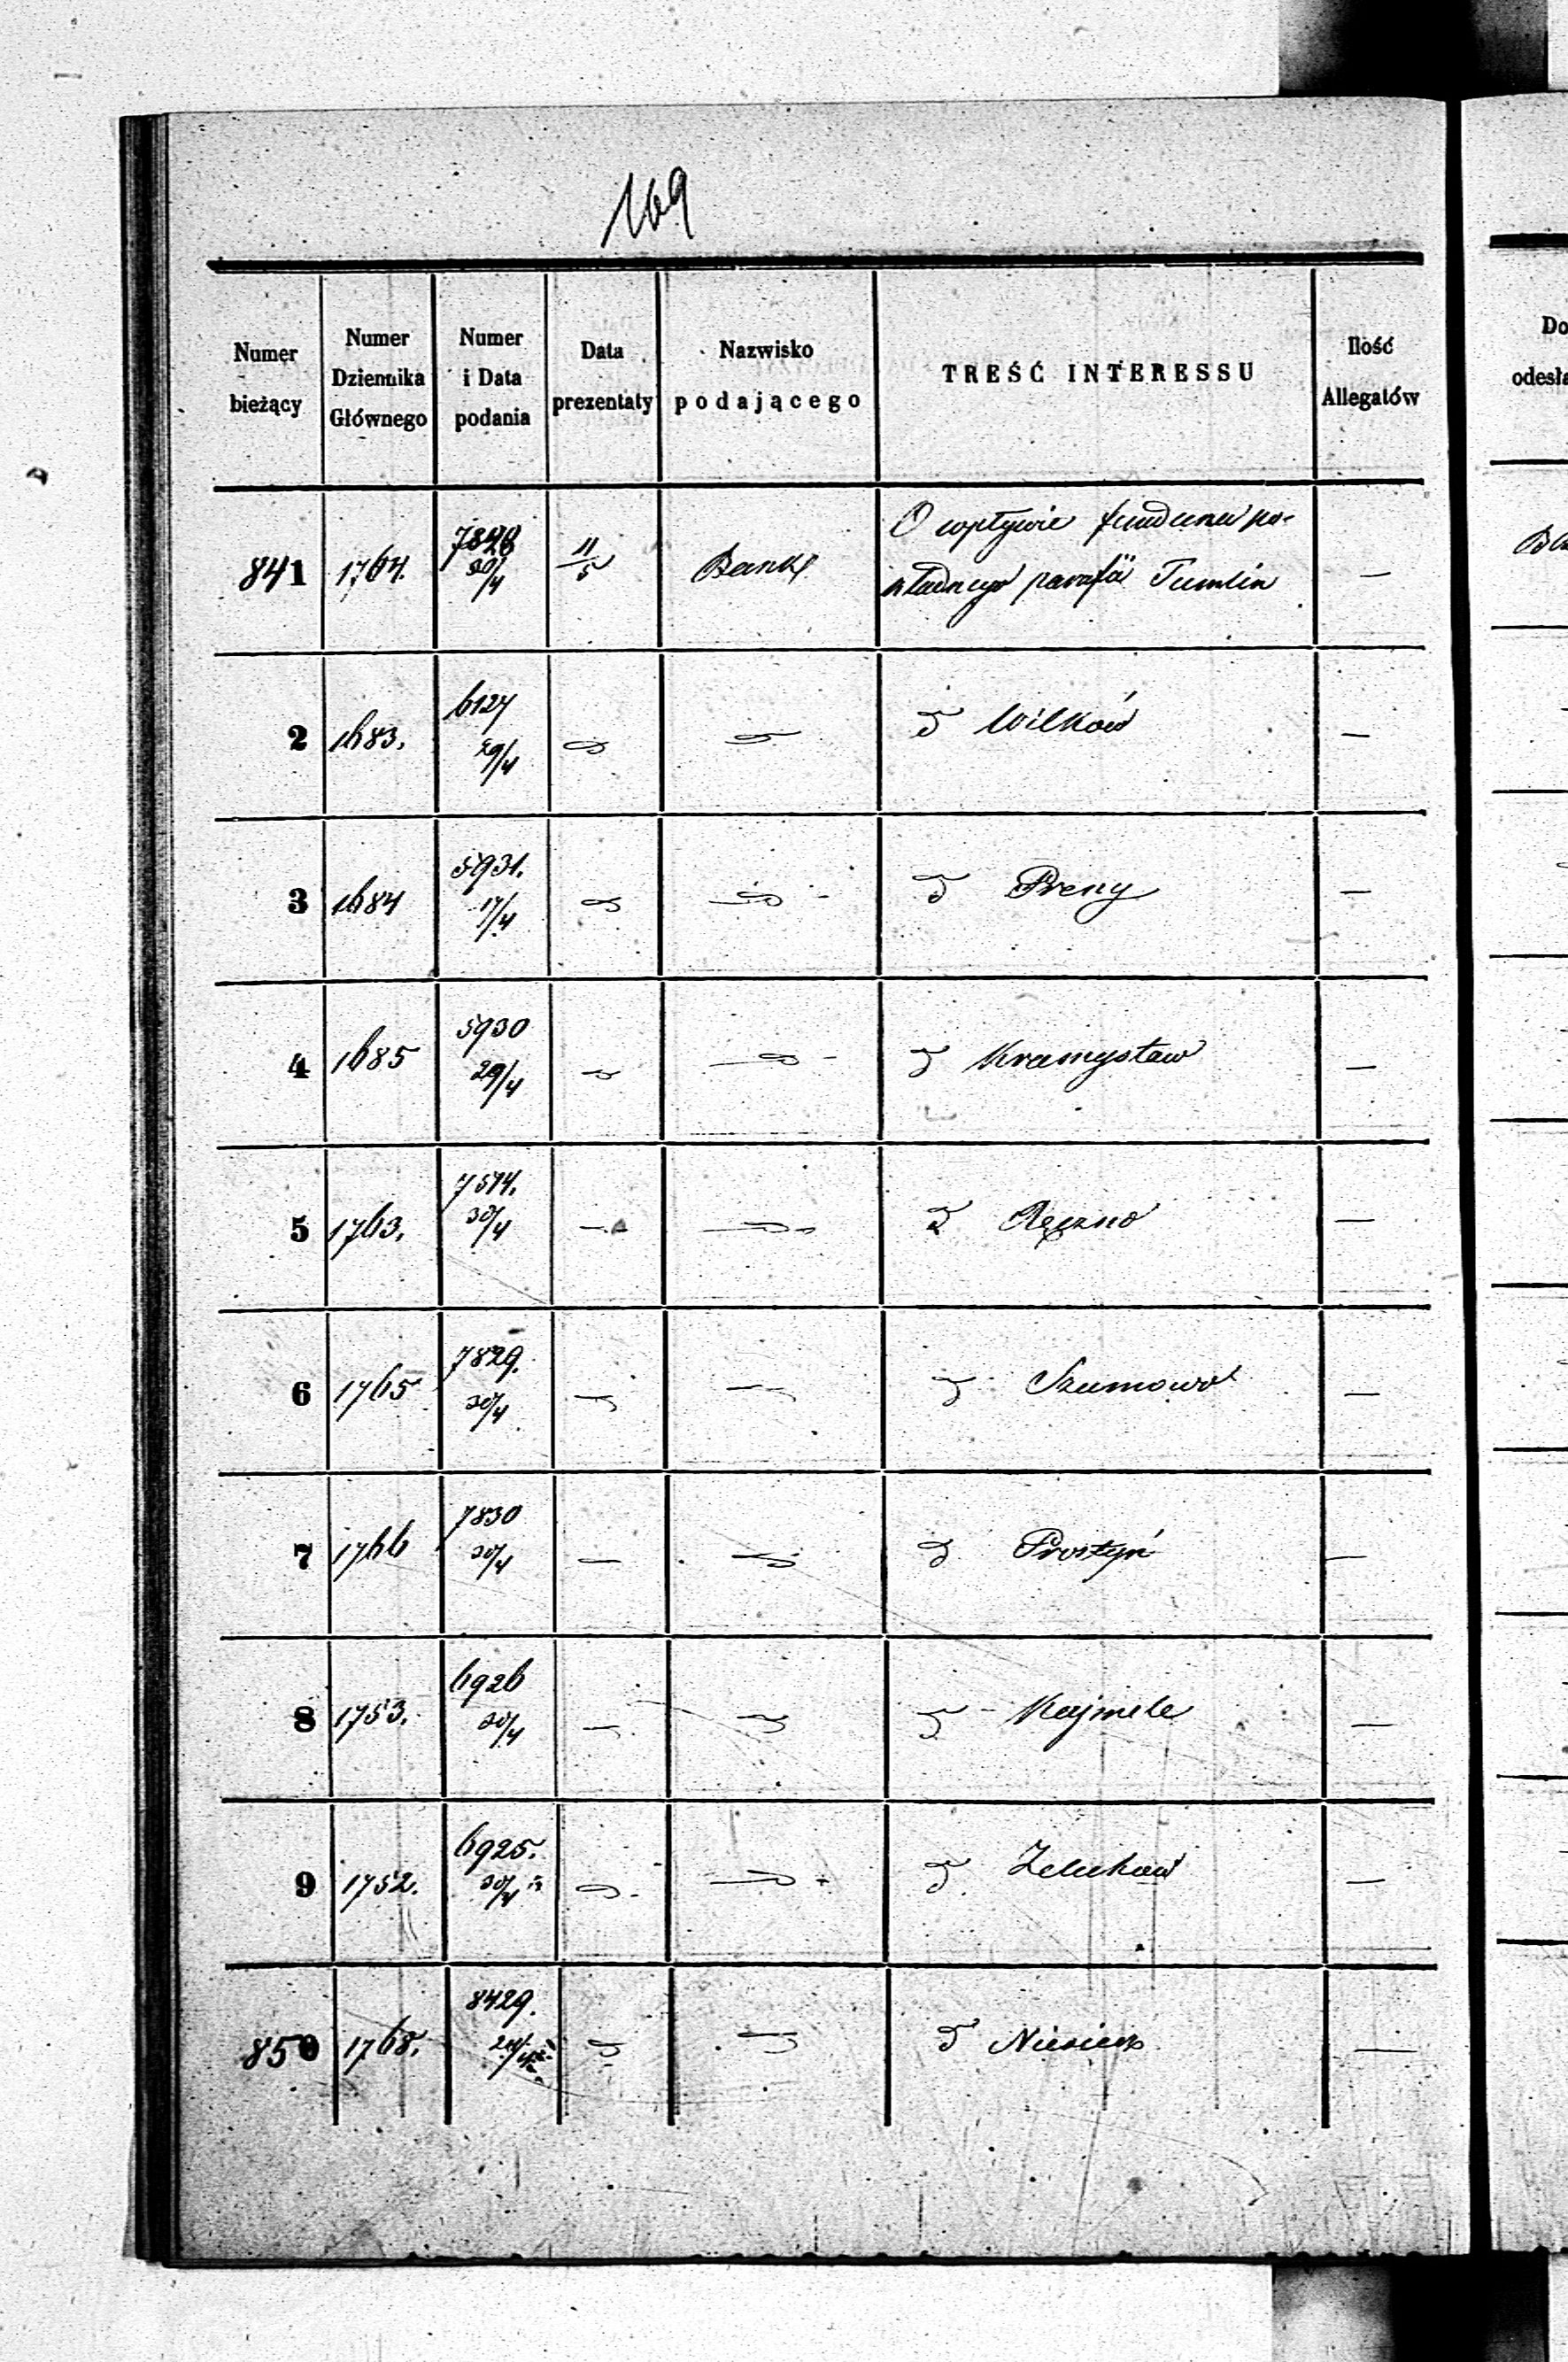 169
Numer bieżący | Numer Dziennika Głównego | Numer i Data podania | Data prezentaty | Nazwisko podającego | TREŚĆ INTERESSU | Ilość Allegatów
841 | 1764. | 7828 30/4 | 11/5 | Bank | O wpływie funduszu po-
kładnego parafii Tumlin | —
2 | 1683. | 6127 29/4 | Wilków | —
3 | 1684 | 5931. 17/4 | Preny | —
4 | 1685 | 5930 29/4 | —
5 | 1763. | 7574. 30/4 | Ręczno | —
6 | 1765 | 7829. 30/4 | Szumowo | —
7 | 1766 | 7830 30/4 | Prostyń | —
8 | 1753. | 6926 30/4 | Kajmele | —
9 | 1752. | 6925. 30/4 | Żelechów | —
850 | 1768. | 8429. | —
Do
odesła